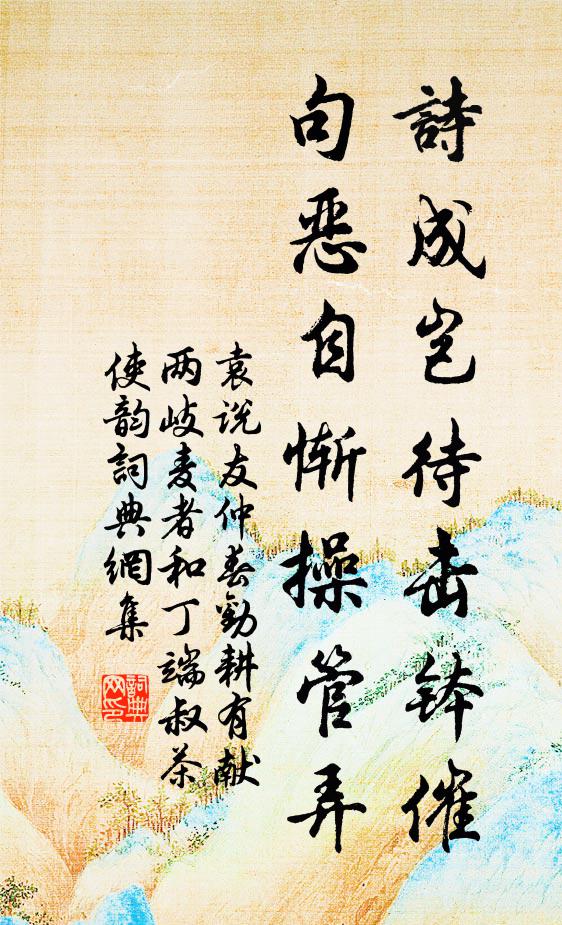 詩成岂待击鉢催
句恶自惭操管弄
袁说友仲春劝耕有献
两岐麦者和丁端叔茶
使韵詞典網集
詞典网印